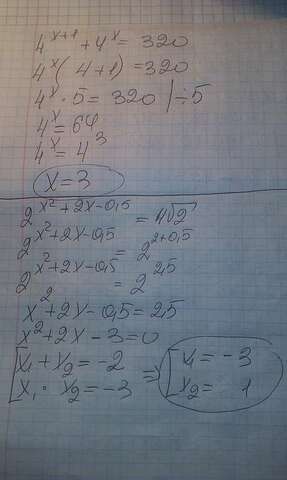 4^(x+1) + 4^x = 320
4^x (4+1) = 320
4^x · 5 = 320 | ÷5
4^x = 64
4^x = 4^3
x = 3
2^(x²+2x-0,5) = 4√2
2^(x²+2x-0,5) = 2^(2+0,5)
2^(x²+2x-0,5) = 2^(2,5)
x² + 2x - 0,5 = 2,5
x² + 2x - 3 = 0
[x₁ + x₂ = -2 ⇒ [x₁ = -3
[x₁ · x₂ = -3 [x₂ = 1